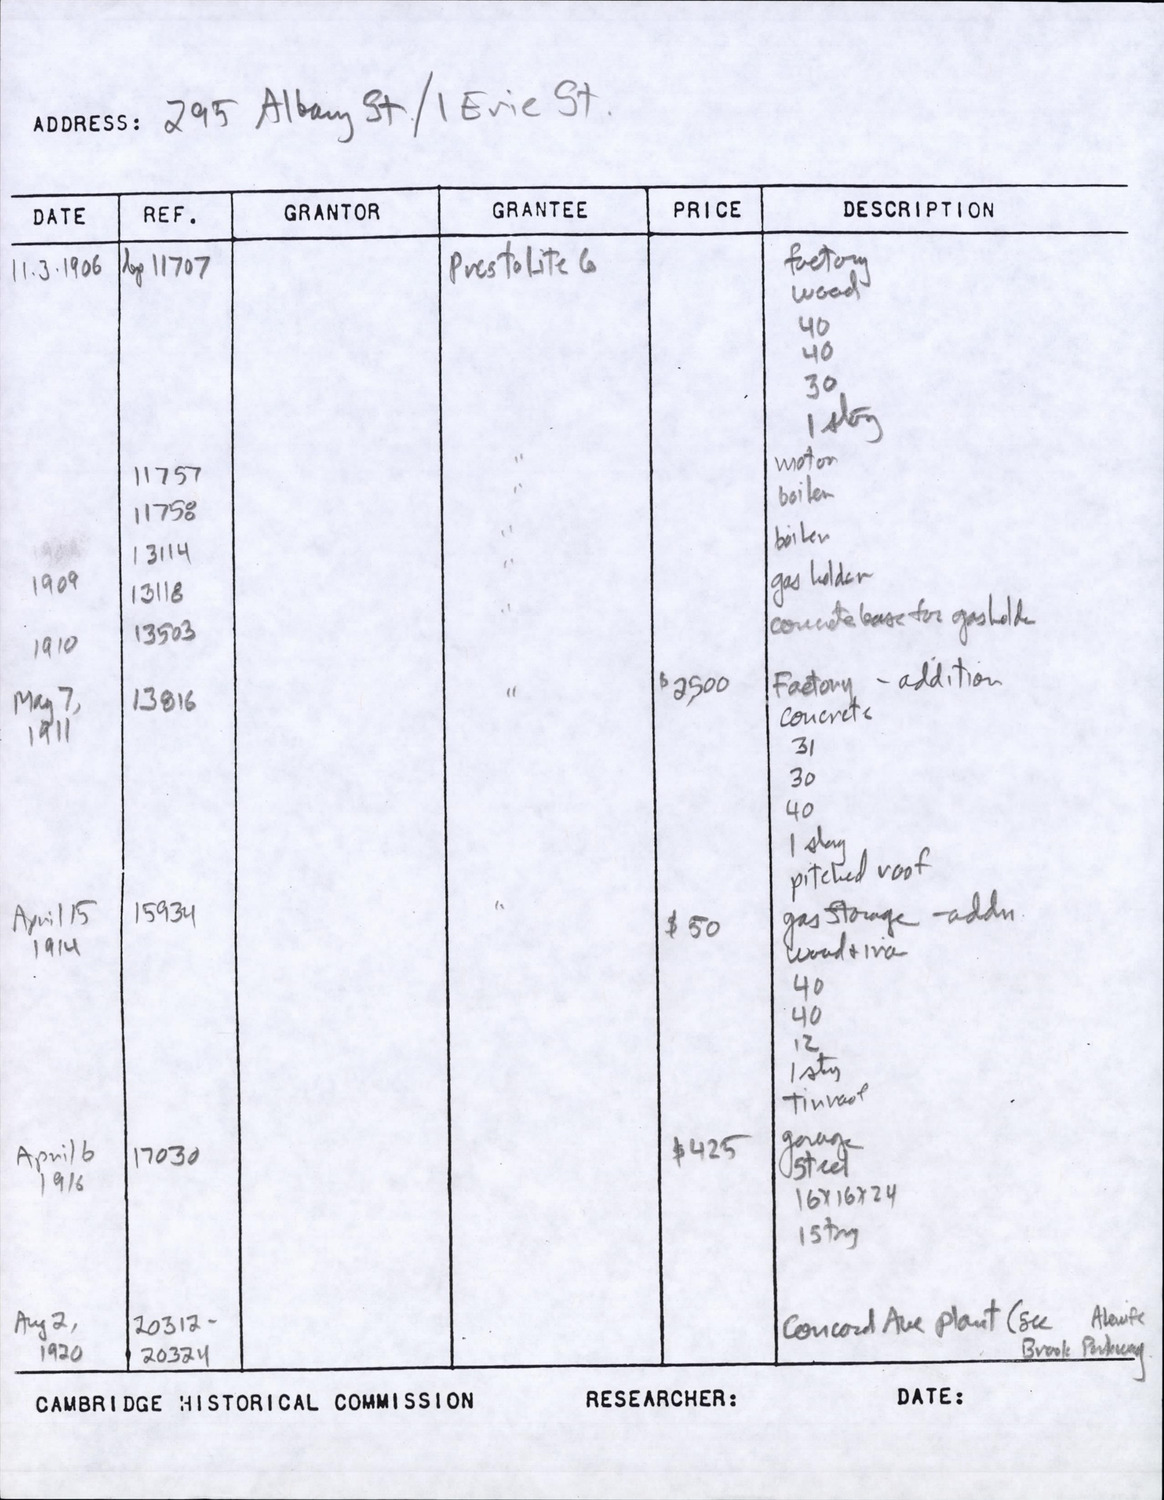 ADDRESS: 295 Albany St. / 1 Erie St.
DATE REF. GRANTOR GRANTEE PRICE DESCRIPTION
11.3.1906 bp 11707 PrestoLite Co factory
wood
40
40
30
1 story
11757 " motor
11758 " boiler
13114 " boiler
1909 13118 " gas holder
1910 13503 " concrete base for gasholder
May 7, 13816 " $2,500 Factory - addition
1911 concrete
31
30
40
1 story
pitched roof
April 15 15934 " $50 gas storage - addn.
1914 wood + iron
40
40
12
1 story
tin roof
April 6 17030 $425 garage
1916 steel
16x16x24
1 story
Aug 2, 20312- Concord Ave plant (see Alewife
1920 20324 Brook Parkway
CAMBRIDGE HISTORICAL COMMISSION RESEARCHER: DATE: